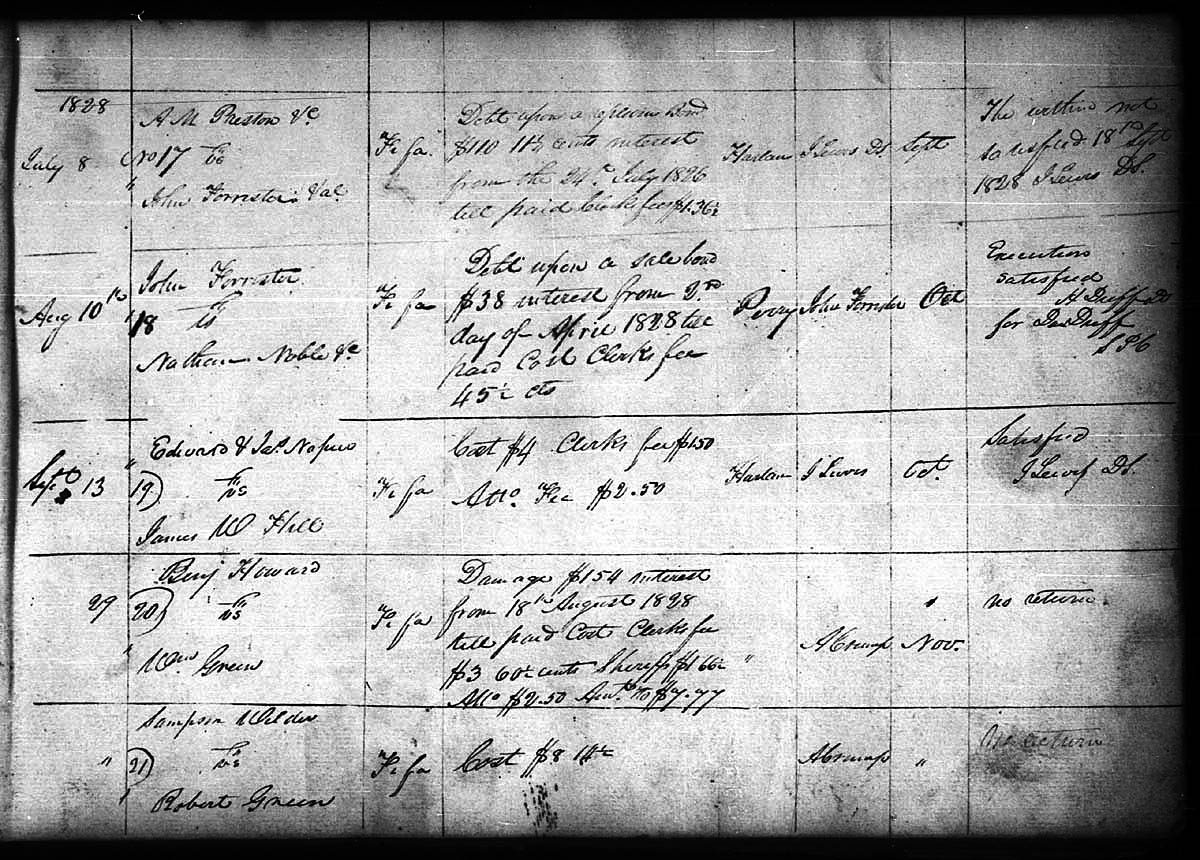 1828
July 8
A M Preston &c
No 17 vs
John Forrester &al
Fi fa.
Debt upon a replevin Bond
$110 11½ cents interest
from the 24th July 1826
till paid Clerks fee $1.36½
Harlan
J Lewis DS
Sept
The within not
satisfied 18th Sept
1828 J Lewis DS.
Aug 10th
John Forrester
18 vs
Nathan Noble &c
Fi fa
Debt upon a sale bond
$38 interest from 2nd
day of April 1828 till
paid Cost Clerks fee
45½ cts
Perry
John Forrester
Oct
Execution
satisfied
H Duff DS
for Duff
S P C
Sept 13
Edward & Jas Napier
19) vs
James W Hill
Fi fa
Cost $4 Clerks fee $1.50
Atto. Fee $2.50
Harlan
J Lewis
Oct.
Satisfied
J Lewis DS.
29
Benj Howard
20) vs
Wm Green
Fi fa
Damage $154 interest
from 18th August 1828
till paid Cost Clerks fee
$3 60½ cents Sheriff $1 66½
Atto $2.50 Amt to $7.77
"
A Crump
Nov.
no return.
"
Sampson Wilder
21) vs
Robert Green
Fi fa
Cost $8 11½
A Crump
"
No return